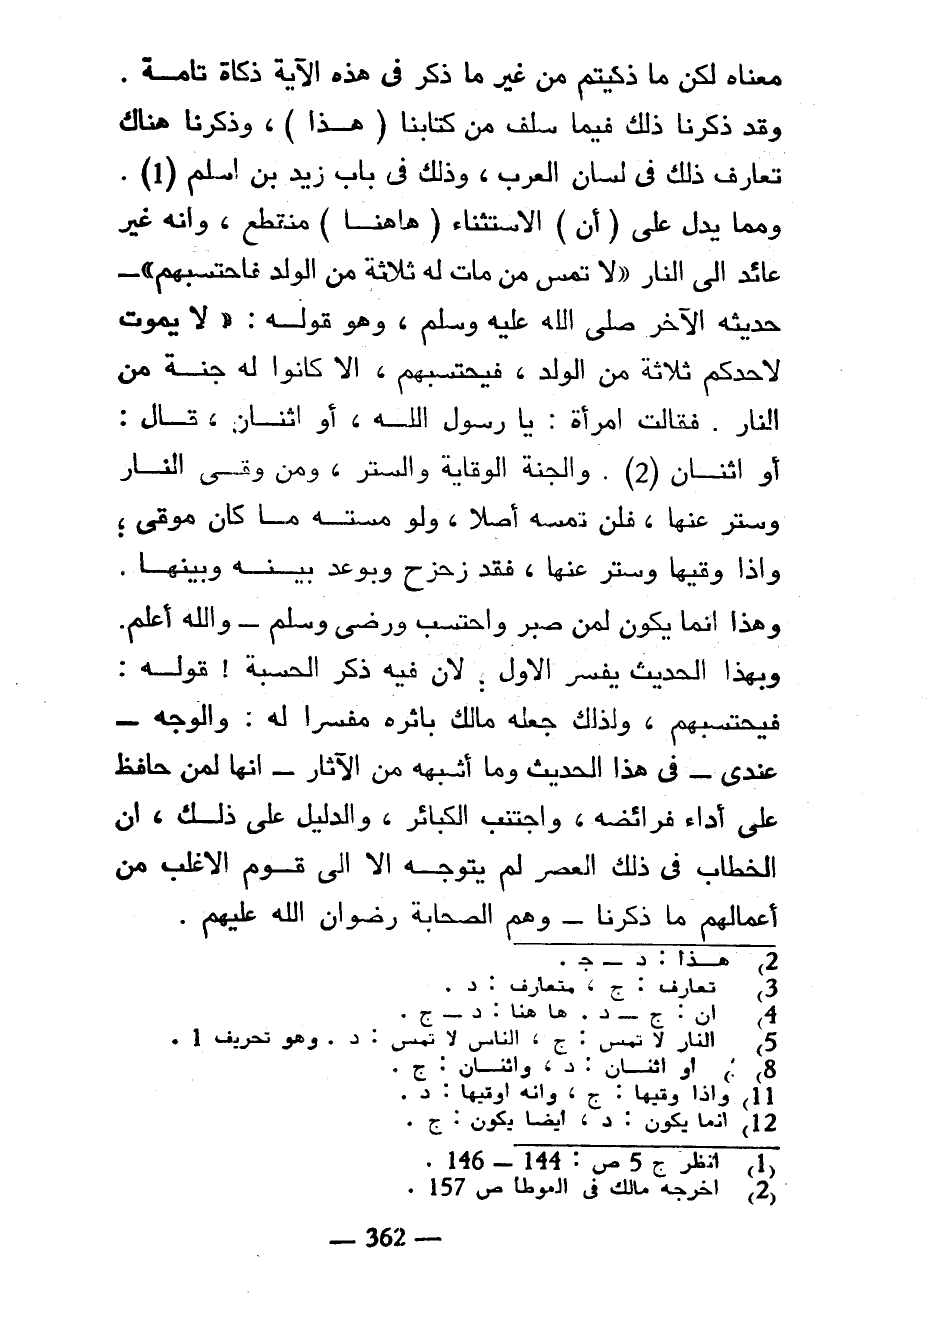 معناه لكن ما ذكيتم من غير ما ذكر فى هذه الآية ذكاة تامــة .
وقد ذكرنا ذلك فيما سلف من كتابنا ( هــذا ) ، وذكرنا هناك
تعارف ذلك فى لسان العرب ، وذلك فى باب زيد بن اسلم (1) .
ومما يدل على ( أن ) الاستثناء ( هاهنــا ) منقطع ، وانه غير
عائد الى النار «لا تمس من مات له ثلاثة من الولد فاحتسبهم»—
حديثه الآخر صلى الله عليه وسلم ، وهو قولــه : « لا يموت
لاحدكم ثلاثة من الولد ، فيحتسبهم ، الا كانوا له جنــة من
النار . فقالت امرأة : يا رسول اللــه ، أو اثنــان ، قــال :
أو اثنــان (2) . والجنة الوقاية والستر ، ومن وقــى النــار
وستر عنها ، فلن تمسه أصلا ، ولو مستــه مــا كان موقى ؛
واذا وقيها وستر عنها ، فقد زحزح وبوعد بينــه وبينهــا .
وهذا انما يكون لمن صبر واحتسب ورضى وسلم — والله أعلم.
وبهذا الحديث يفسر الاول ؛ لان فيه ذكر الحسبة ! قولــه :
فيحتسبهم ، ولذلك جعله مالك باثره مفسرا له : والوجه —
عندى — فى هذا الحديث وما أشبهه من الآثار — انها لمن حافظ
على أداء فرائضه ، واجتنب الكبائر ، والدليل على ذلــك ، ان
الخطاب فى ذلك العصر لم يتوجــه الا الى قــوم الاغلب من
أعمالهم ما ذكرنا — وهم الصحابة رضوان الله عليهم .
2) هــذا : د — ج .
3) تعارف : ج ، متعارف : د .
4) ان : ج — د . ها هنا : د — ج .
5) النار لا تمس : ج ، الناس لا تمس : د . وهو تحريف 1 .
8) او اثنــان : د ، واثنــان : ج .
11) واذا وقيها : ج ، وانه اوقيها : د .
12) انما يكون : د ، ايضا يكون : ج .
(1) انظر ج 5 ص : 144 — 146 .
(2) اخرجه مالك فى الموطا ص 157 .
— 362 —